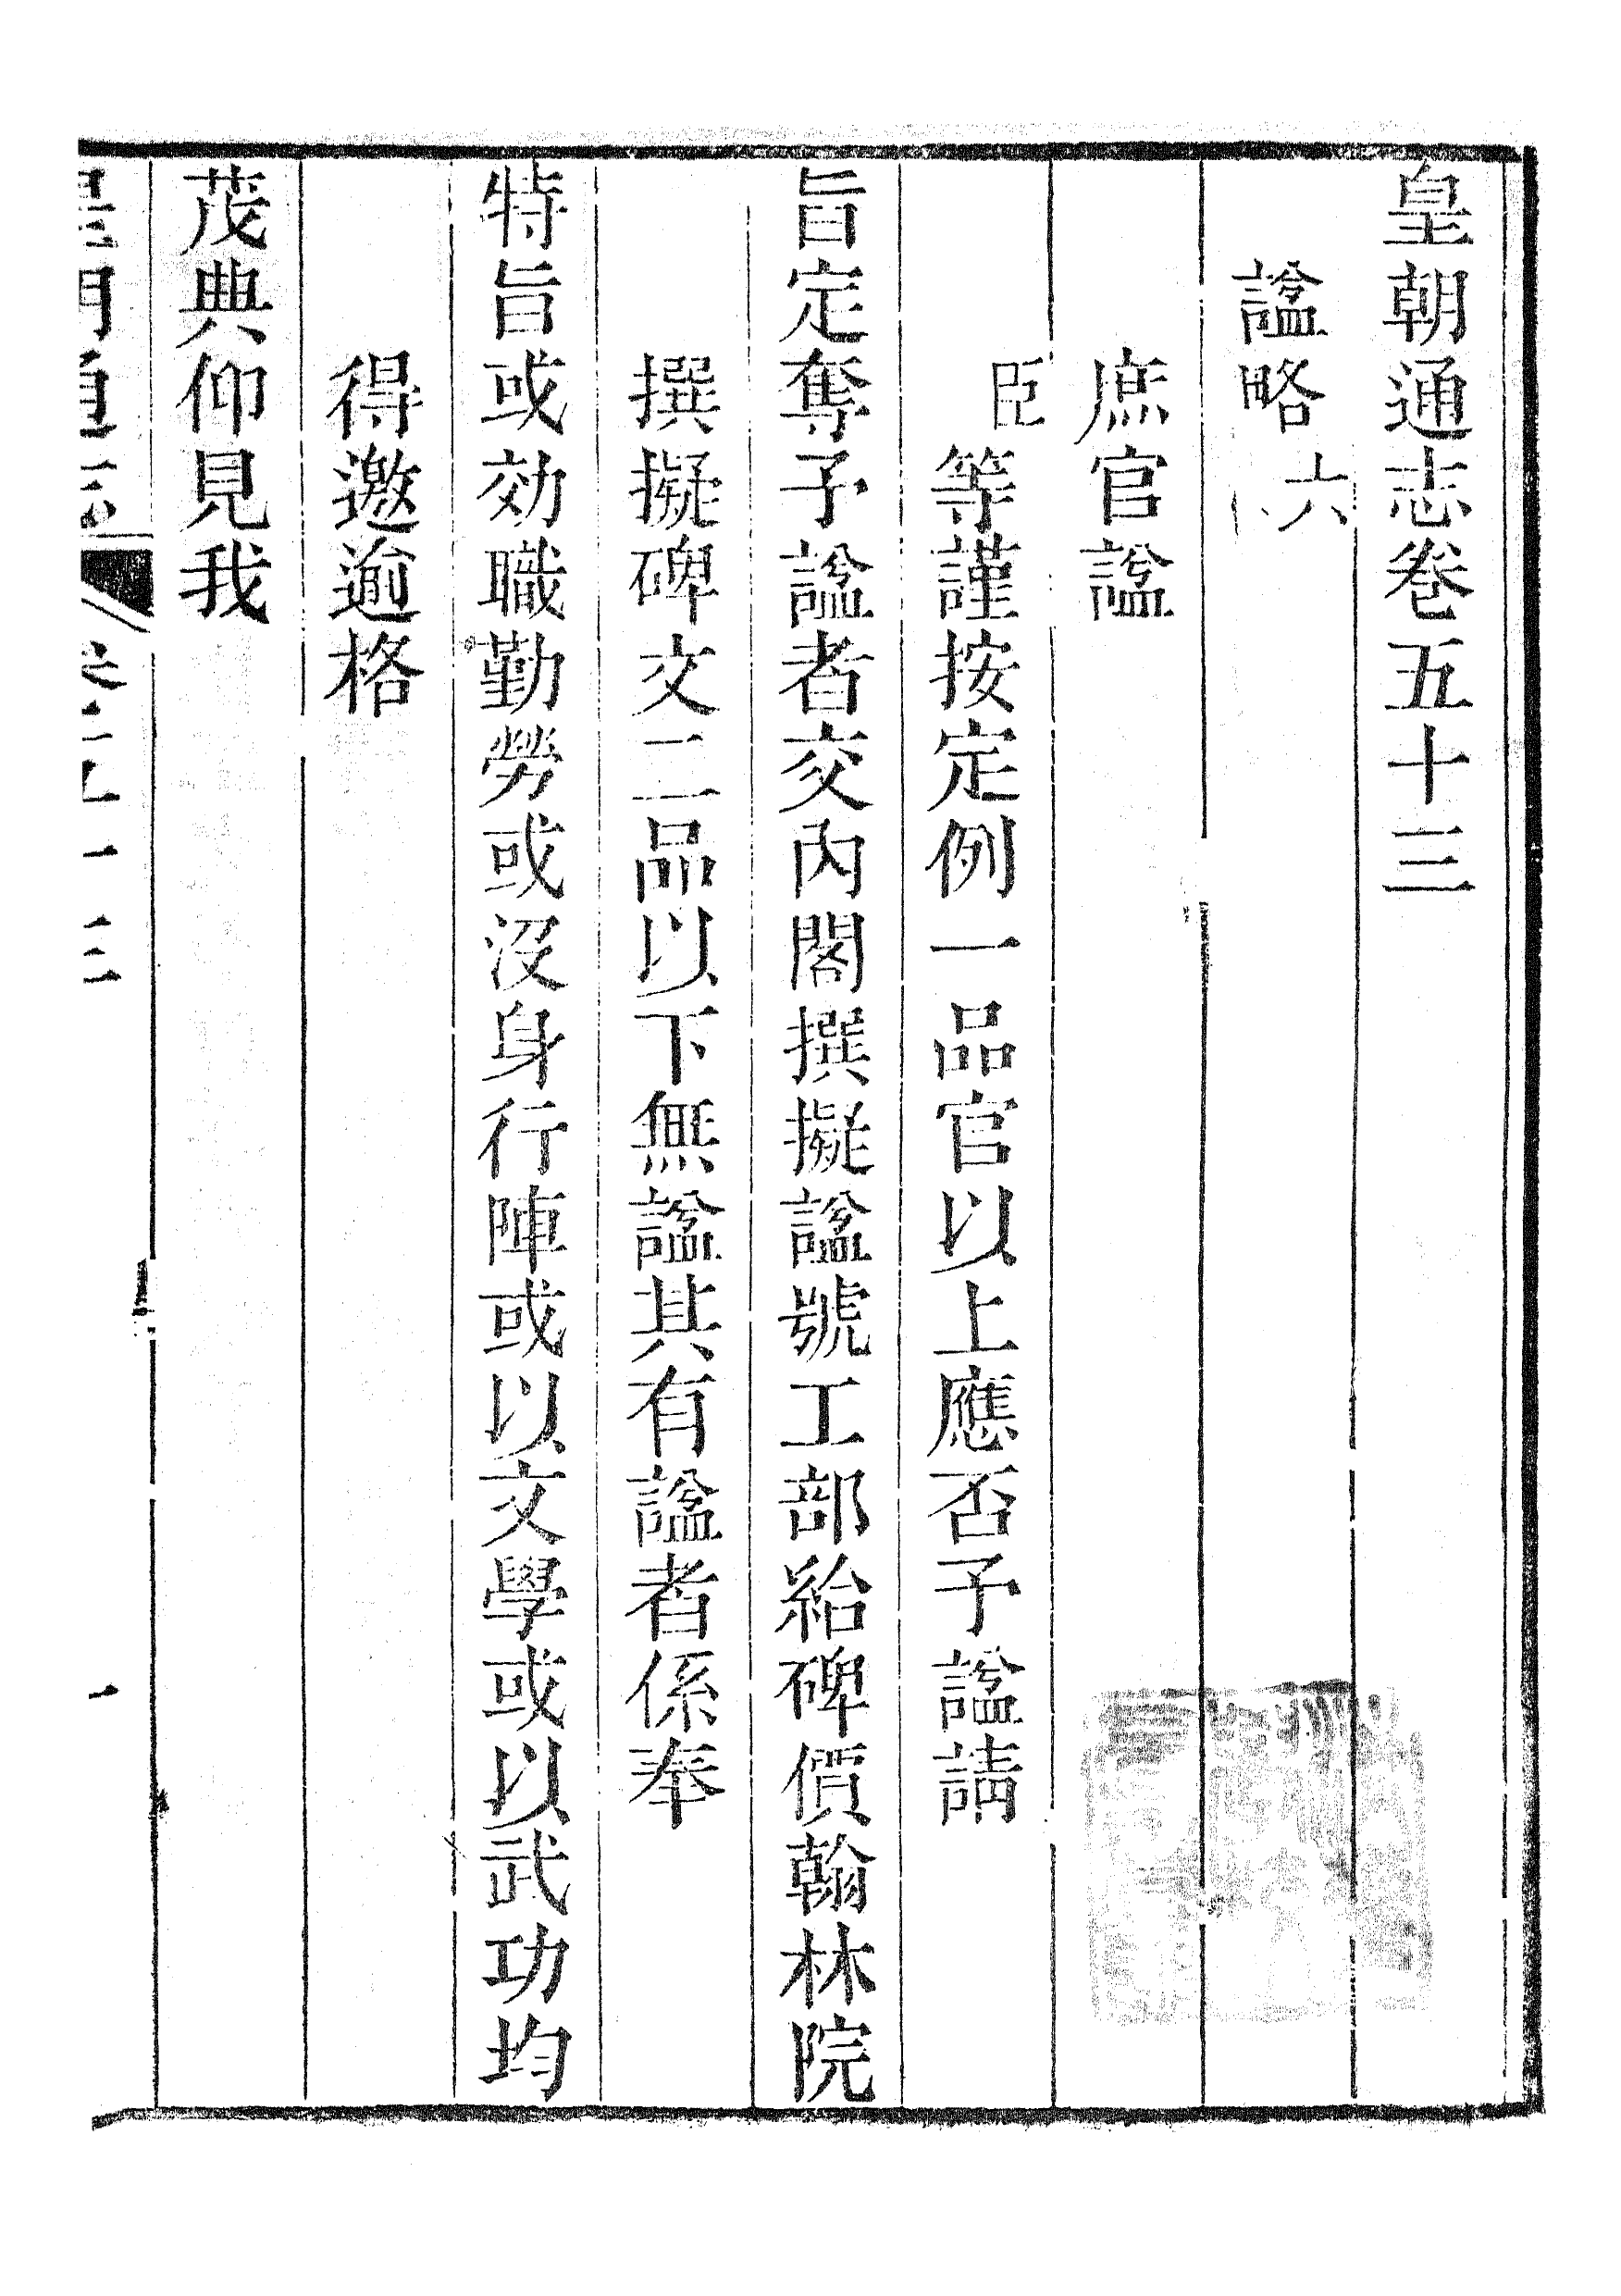 皇朝通志卷五十三
諡略六
庶官諡
臣等謹按定例一品官以上應否予諡請
旨定奪予諡者交內閣撰擬諡號工部給碑價翰林院
撰擬碑文二品以下無諡其有諡者係奉
特旨或効職勤勞或沒身行陣或以文學或以武功均
得邀逾格
茂典仰見我